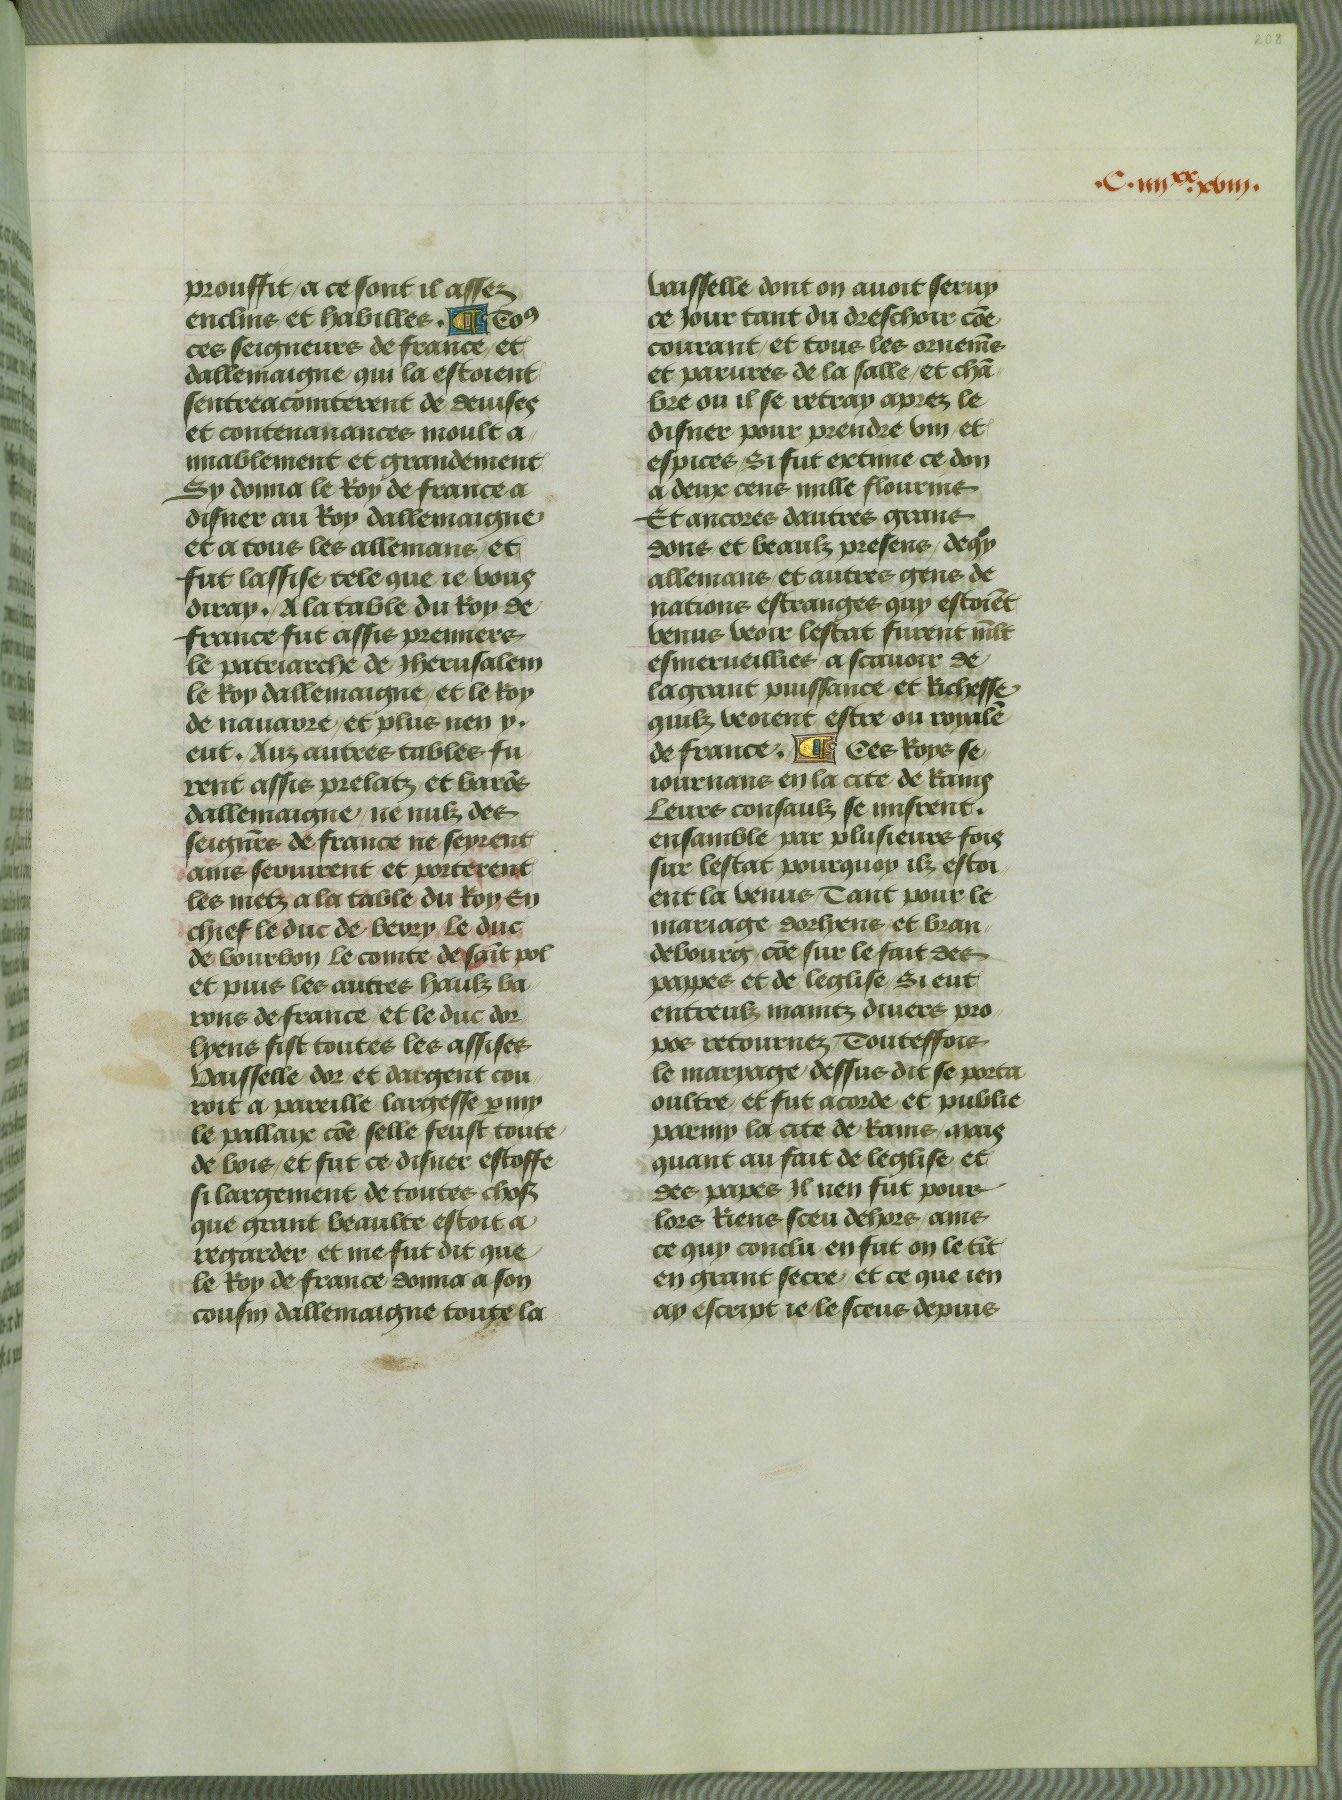 208
.C.iiijxx.xviij.
prouffit / a ce sont il assez
enclins et habilles . ¶ Toꝰ
ces seigneurs de france / et
dallemaigne / qui la estoient
sentreacointerent de deuises
et contenanances moult a/
miablement et grandement
Sy donna le Roy de france a
disner au Roy dallemaigne
et a tous les allemans / et
fut lassise tele que ie vous
diray . A la table du Roy de
france fut assis premiers
le patriarche de Iherusalem
le Roy dallemaigne / et le Roy
de nauarre / et plus nen y .
eut . Auz autres tables fu
rent assis prelatz et barōs
dallemaigne / ne nulz des
seignr̄s de france ne seyrent
ains seruirent et porterent
les metz a la table du Roy En
chief le duc de berry le duc
de bourbon Le comte de sāit pol
et puis les autres haulz ba/
rons de france / et le duc dor
lyens fist toutes les assises
Vaisselle / dor / et dargent cou/
roit a pareille largesse ꝑmy
le pallaix cōe selle feust toute
de bois / et fut ce disner estoffe
si largement de toutes chosꝭ
que grant beaulte estoit a
regarder et me fut dit que
le Roy de france donna a son
cousin dallemaigne toute la
vaisselle dont on auoit seruy
ce Jour tant du dreschoir cōe
courant / et tous les ornemēs
et parures de la salle / et chā
bre ou il se retray aprez le
disner pour prendre vin / et
espices / Si fut extime ce don
a deux cens mille flourins
Et ancores dautres grans
dons et beaulz presens / deq̄y
allemans / et autres gens de
nations estranges quy estoiēt
venus veoir lestat furent m̄lt
esmerueillies / a scauoir de
la grant puissance et Richesse
quilz veoient estre ou royalē
de france . ¶ Ces Roys se
iournans en la cite de Rains
Leurs consaulz se misrent .
ensamble par plusieurs fois
sur lestat pourquoy ilz estoi
ent la venus / Tant pour le
mariage dorlyens et bran/
debourg / cōe sur le fait des
papes et de leglise / Si eut
entreulz maintz diuers pro/
pos retournez / Touteffois
le maryage / dessus dit se porta
oultre / et fut acorde et publie
parmy la cite de Rains / mais
quant au fait de leglise et
des papes Il nen fut pour
lors Riens sceu dehors / ains
ce quy conclu en fut on le tīt
en grant secre / et ce que ien
ay escript ie le sceus depuis